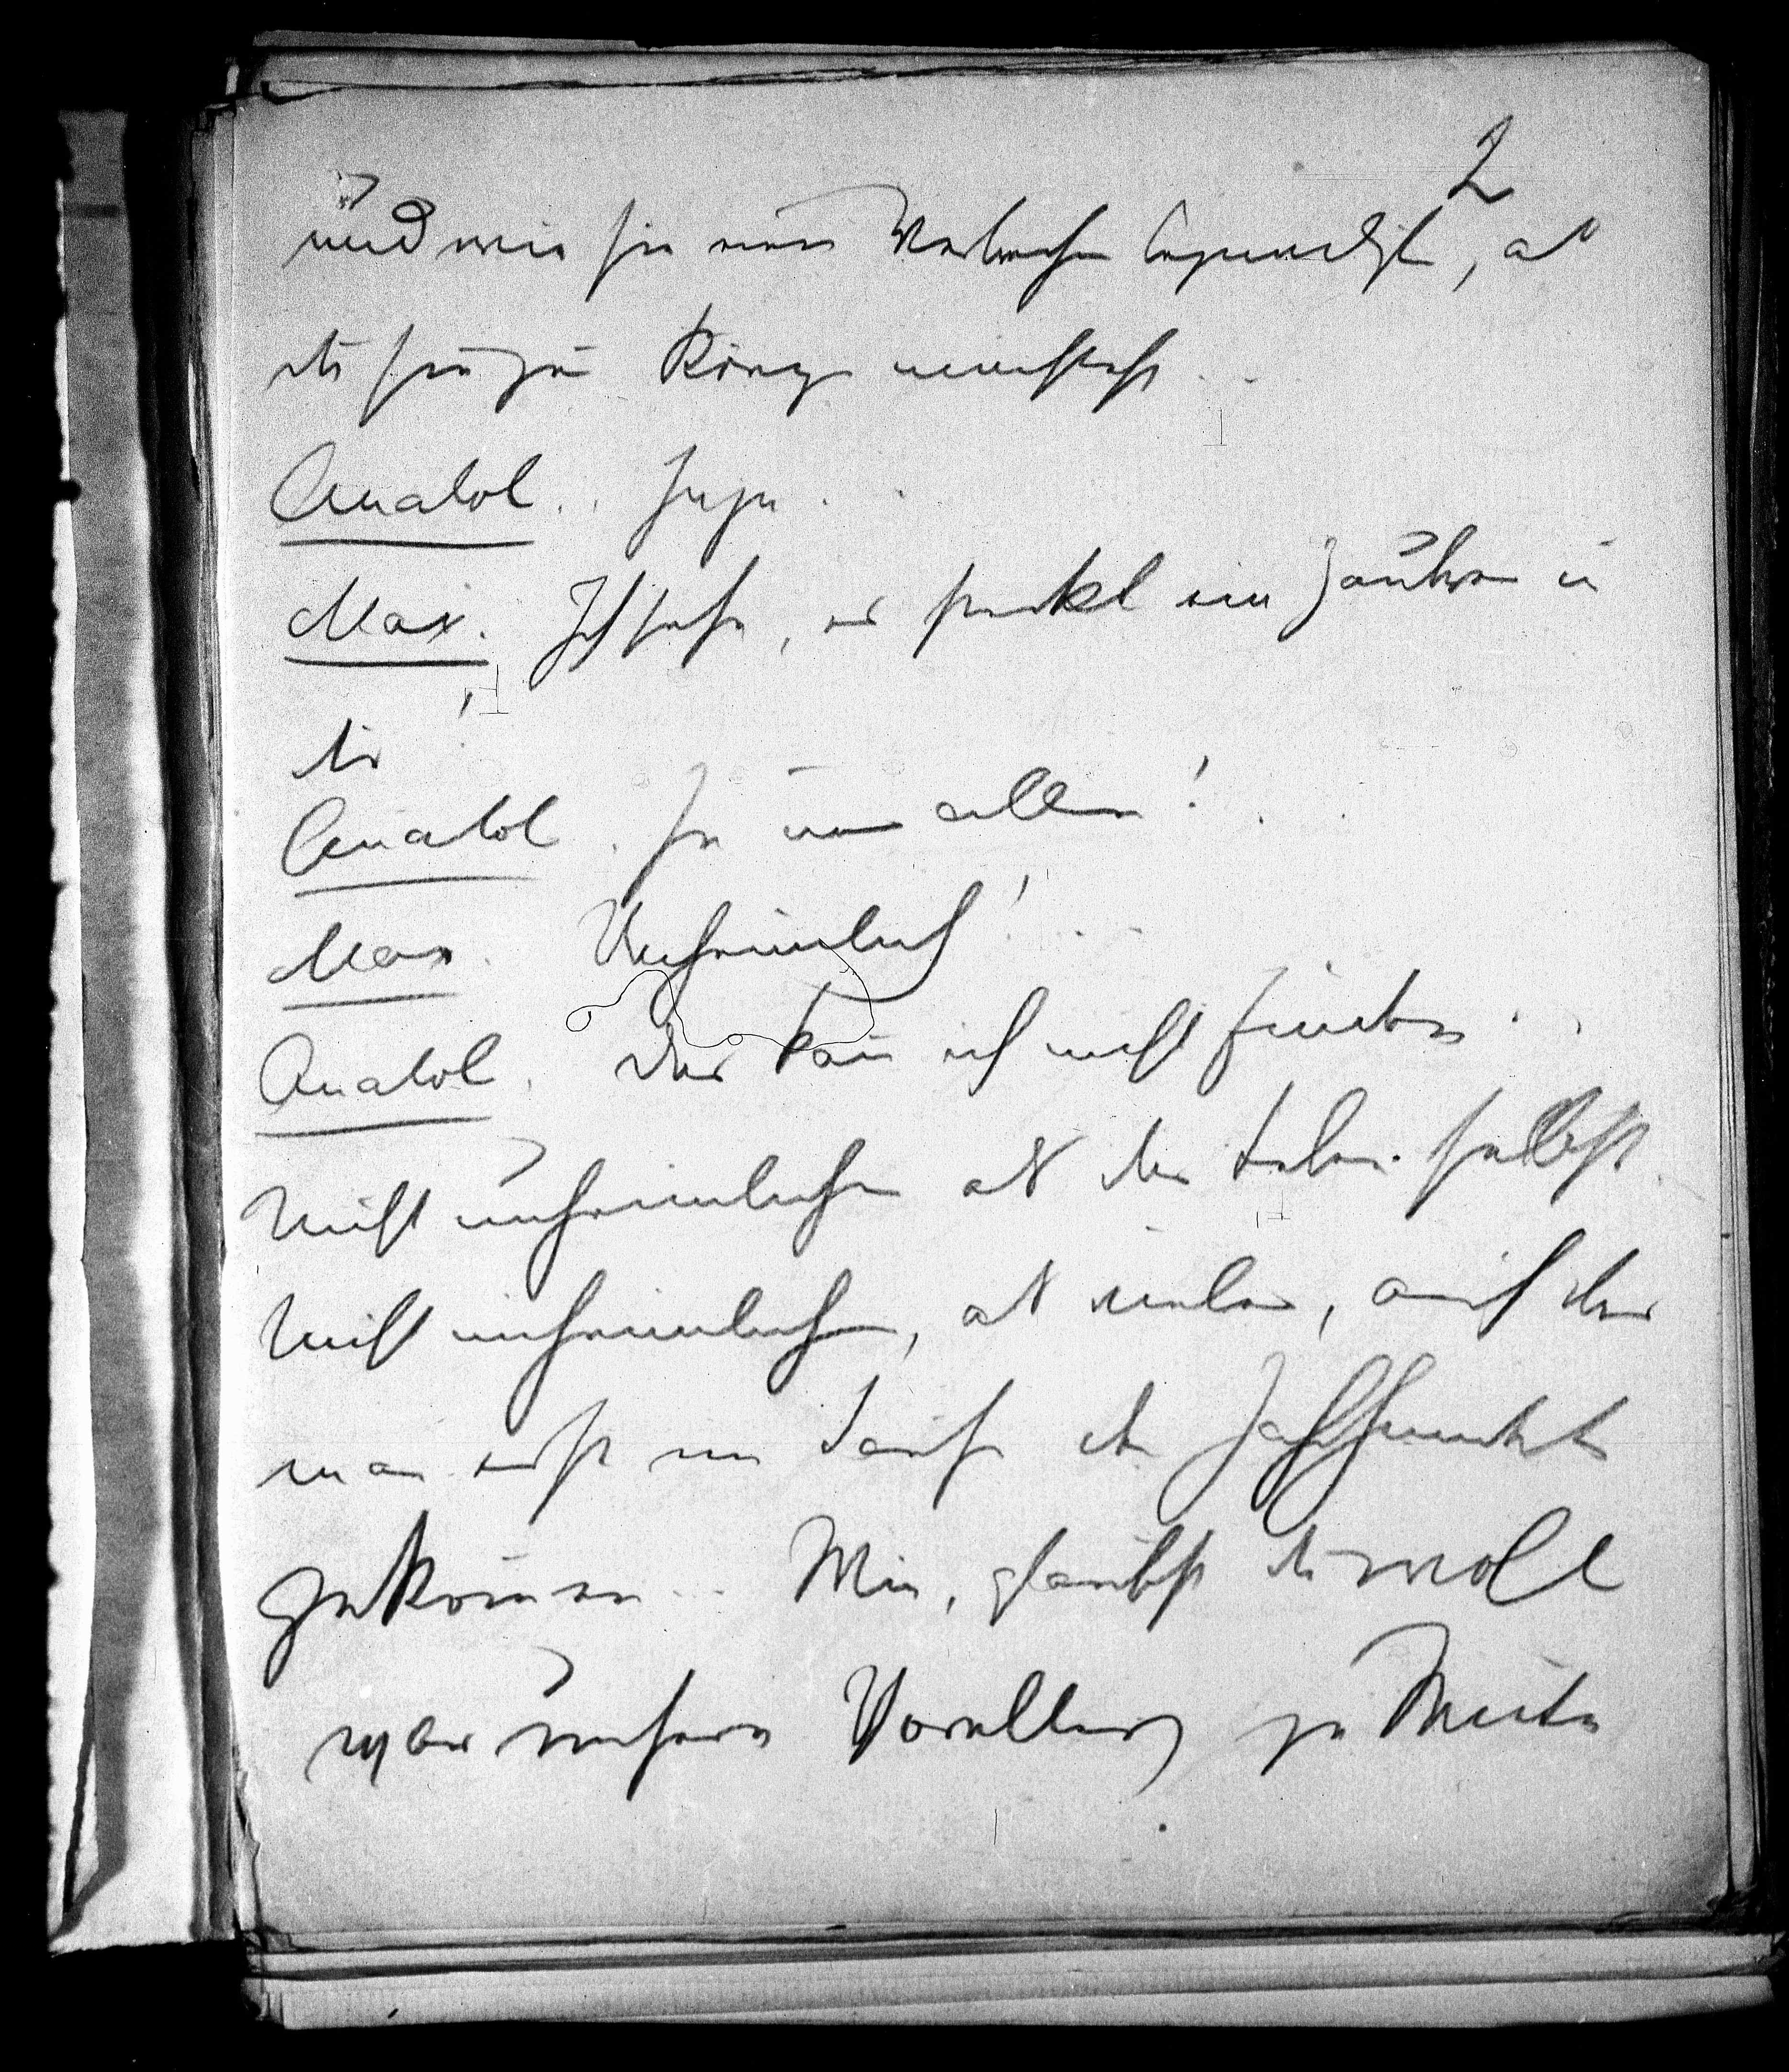 2
und wie sie einen Verbrecher begnadigte, als
du sie zur Königin machtest . .
Anatol . . Jaja . .
Max. Ich sehe, es steckt ein Zauberer in
dir
Anatol . In uns allen! . .
Max. Unheimlich! . .
Anatol. Das kan̄ ich nicht finden . .
Nicht unheimlicher als das Leben selbst.
Nicht unheimlicher, als vieles, auf das
man erst im Laufe der Jahrhunderte
gekom̄en . . Wie, glaubst du wohl
war unsern Voreltern zu Mute